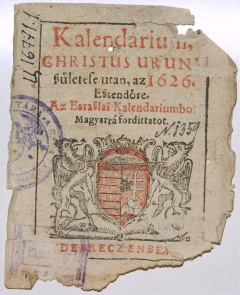 Kalendariu
CHRISTUS URUN
ßületese utan, az 1626.
Eßtendöre.
Az Earaßai Kalendariumbol
Magyarrá fordittatot.
N. 1359
DEBRECZENBEN